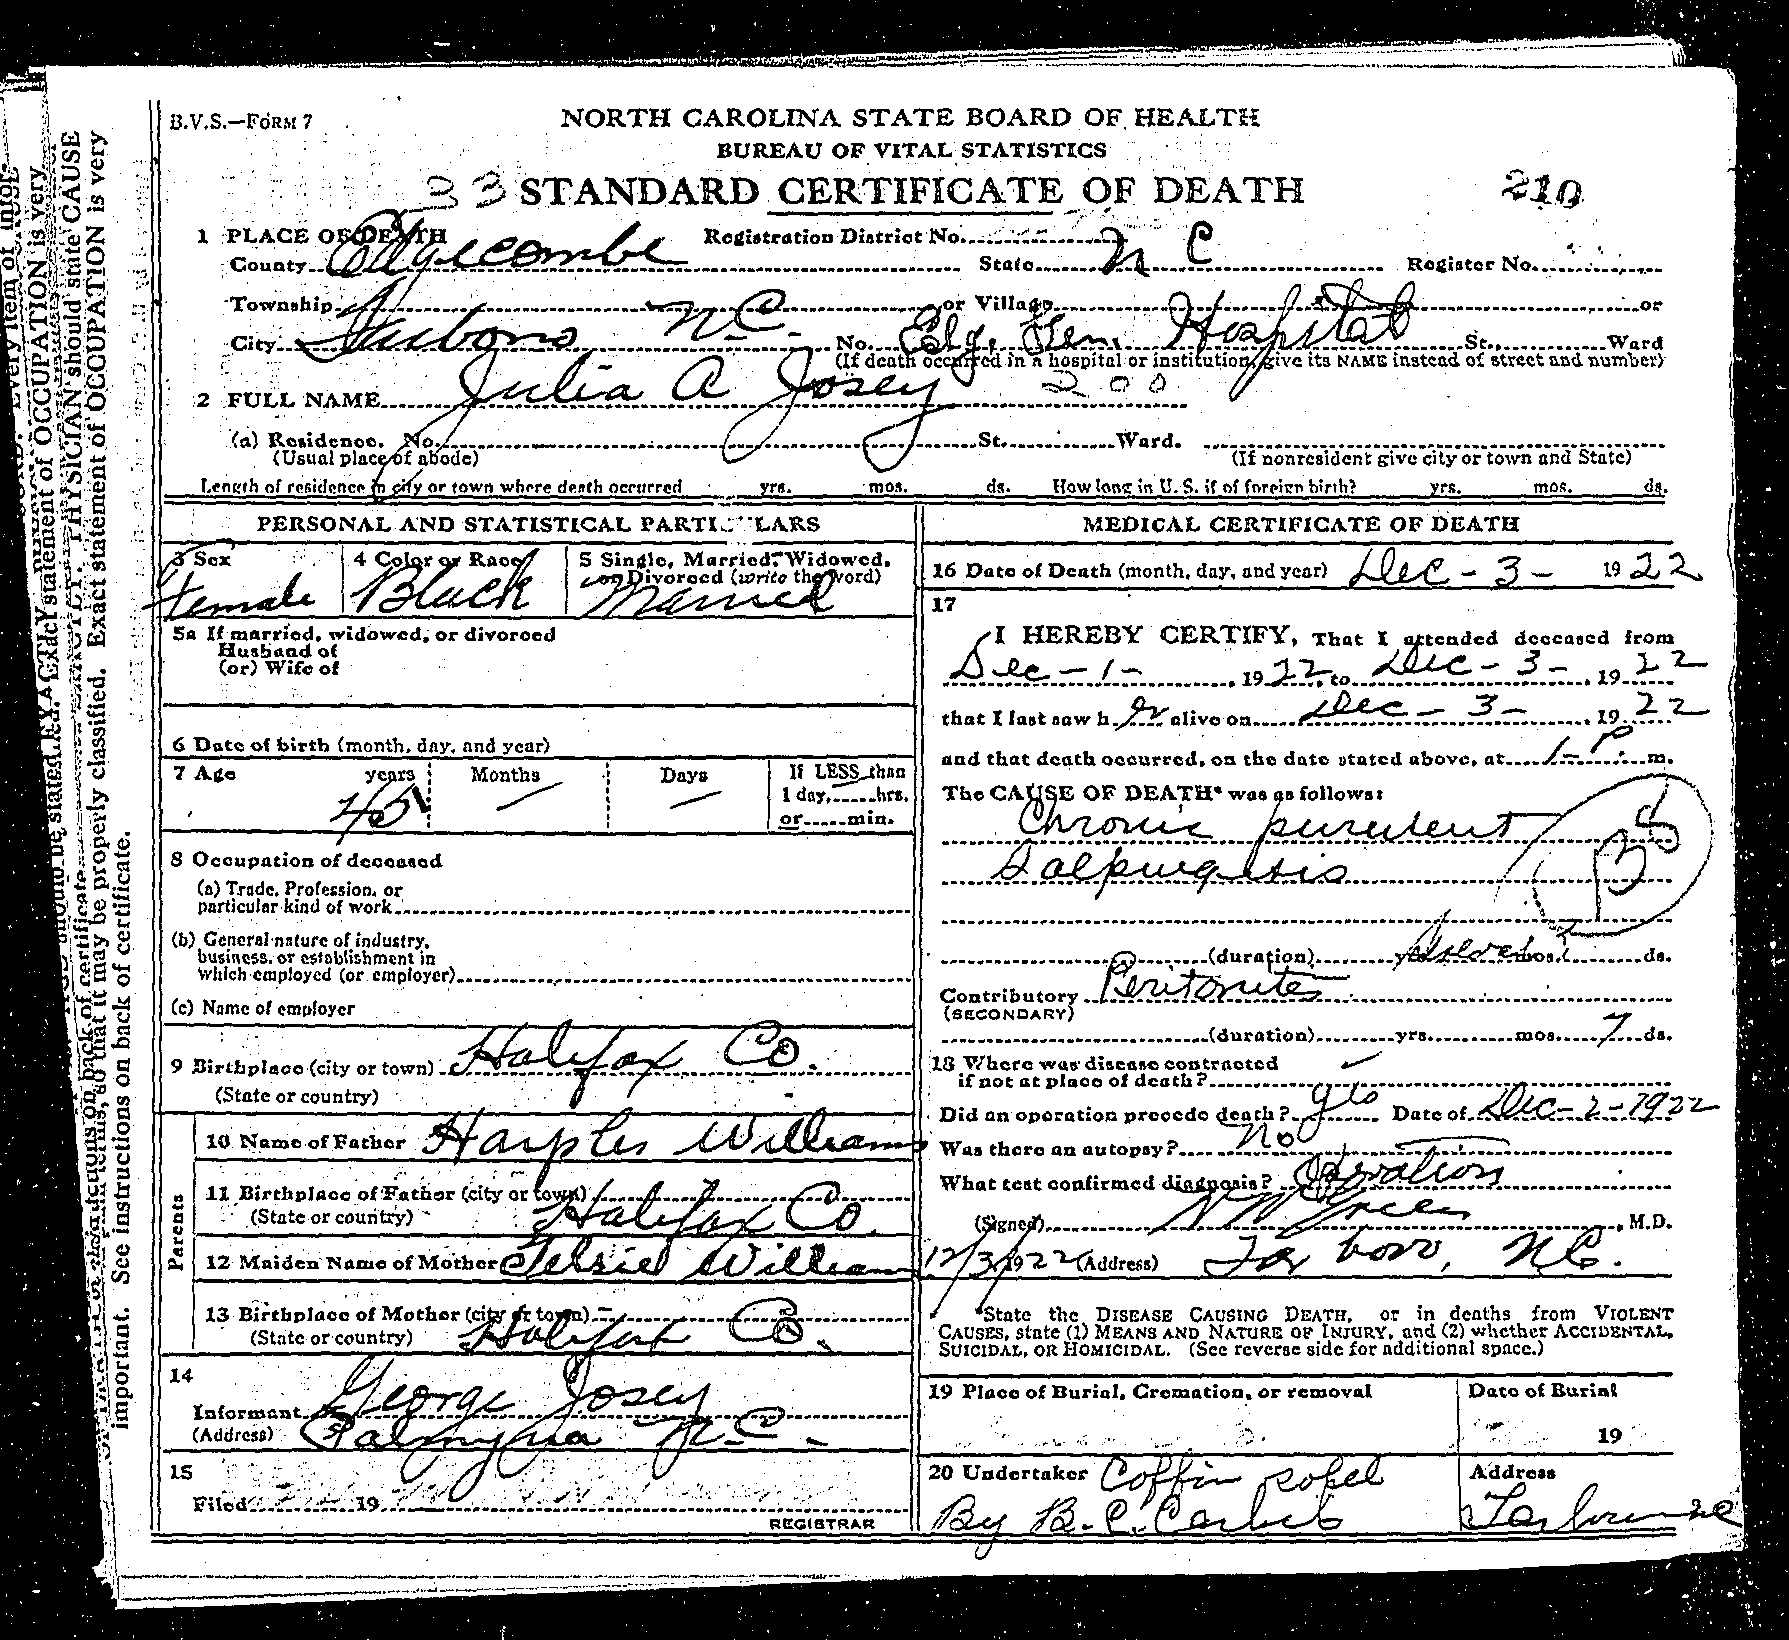 B.V.S.—FORM 7
NORTH CAROLINA STATE BOARD OF HEALTH
BUREAU OF VITAL STATISTICS
33 STANDARD CERTIFICATE OF DEATH 210
1 PLACE OF DEATH Registration District No.
County Edgecombe State N C Register No.
Township or Village or
City Tarboro N.C. No. Edg. Gen. Hospital St. Ward
(If death occurred in a hospital or institution, give its NAME instead of street and number)
2 FULL NAME Julia A Josey 200
(a) Residence. No. St. Ward.
(Usual place of abode) (If nonresident give city or town and State)
Length of residence in city or town where death occurred yrs. mos. ds. How long in U. S. if of foreign birth? yrs. mos. ds.
PERSONAL AND STATISTICAL PARTICULARS
3 Sex 4 Color or Race 5 Single, Married, Widowed,
or Divorced (write the word)
Female Black Married
5a If married, widowed, or divorced
Husband of
(or) Wife of
6 Date of birth (month, day, and year)
7 Age years Months Days If LESS than
1 day, hrs.
45 — — or min.
8 Occupation of deceased
(a) Trade, Profession, or
particular kind of work
(b) General nature of industry,
business, or establishment in
which employed (or employer)
(c) Name of employer
9 Birthplace (city or town) Halifax Co.
(State or country)
Parents
10 Name of Father Williams
11 Birthplace of Father (city or town)
(State or country) Halifax Co.
12 Maiden Name of Mother William
13 Birthplace of Mother (city or town)
(State or country) Halifax Co.
14
Informant George Josey
(Address) Palmyra N.C.
15
Filed 19
REGISTRAR
MEDICAL CERTIFICATE OF DEATH
16 Date of Death (month, day, and year) Dec - 3 - 1922
17
I HEREBY CERTIFY, That I attended deceased from
Dec - 1 - , 1922, to Dec - 3 - , 1922
that I last saw her alive on Dec - 3 - , 1922
and that death occurred, on the date stated above, at 1 - P. m.
The CAUSE OF DEATH* was as follows:
Chronic purulent
Salpingitis
(duration) yrs. Several mos. ds.
Contributory Peritonitis
(SECONDARY)
(duration) yrs. mos. 7 ds.
18 Where was disease contracted
if not at place of death?
Did an operation precede death? yes Date of Dec - 2 - 1922
Was there an autopsy? No
What test confirmed diagnosis? Operation
(Signed) Green, M.D.
12/3/1922 (Address) Tarboro, N.C.
*State the DISEASE CAUSING DEATH, or in deaths from VIOLENT
CAUSES, state (1) MEANS AND NATURE OF INJURY, and (2) whether ACCIDENTAL,
SUICIDAL, OR HOMICIDAL. (See reverse side for additional space.)
19 Place of Burial, Cremation, or removal Date of Burial
19
20 Undertaker Coffin Address
By B. C. Tarboro NC
should state CAUSE
Exact statement of OCCUPATION is very
important. See instructions on back of certificate.